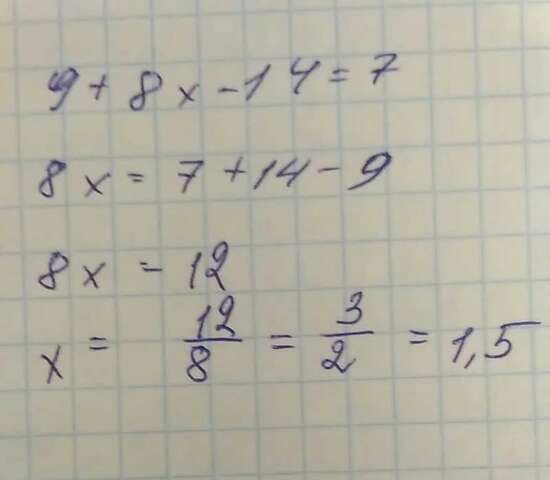 9 + 8x - 14 = 7
8x = 7 + 14 - 9
8x = 12
x = 12/8 = 3/2 = 1,5